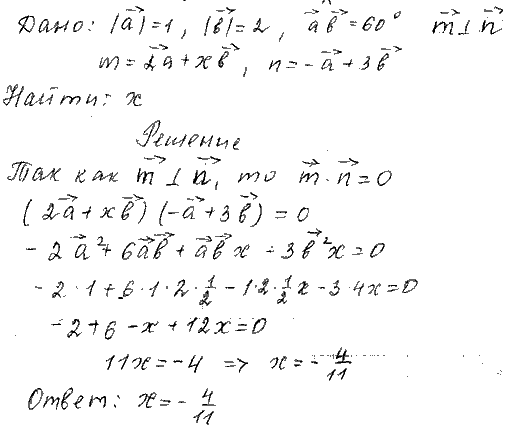 Дано: |a⃗|=1, |b⃗|=2, a⃗b⃗=60° m⃗⊥n⃗
m=2a⃗+xb⃗, n=-a⃗+3b⃗
Найти: x
Решение
Так как m⃗⊥n⃗, то m⃗·n⃗=0
(2a⃗+xb⃗)(-a⃗+3b⃗)=0
-2a⃗²+6a⃗b⃗+a⃗b⃗x-3b⃗²x=0
-2·1+6·1·2·1/2-1·2·1/2x-3·4x=0
-2+6-x+12x=0
11x=-4 => x=-4/11
Ответ: x=-4/11